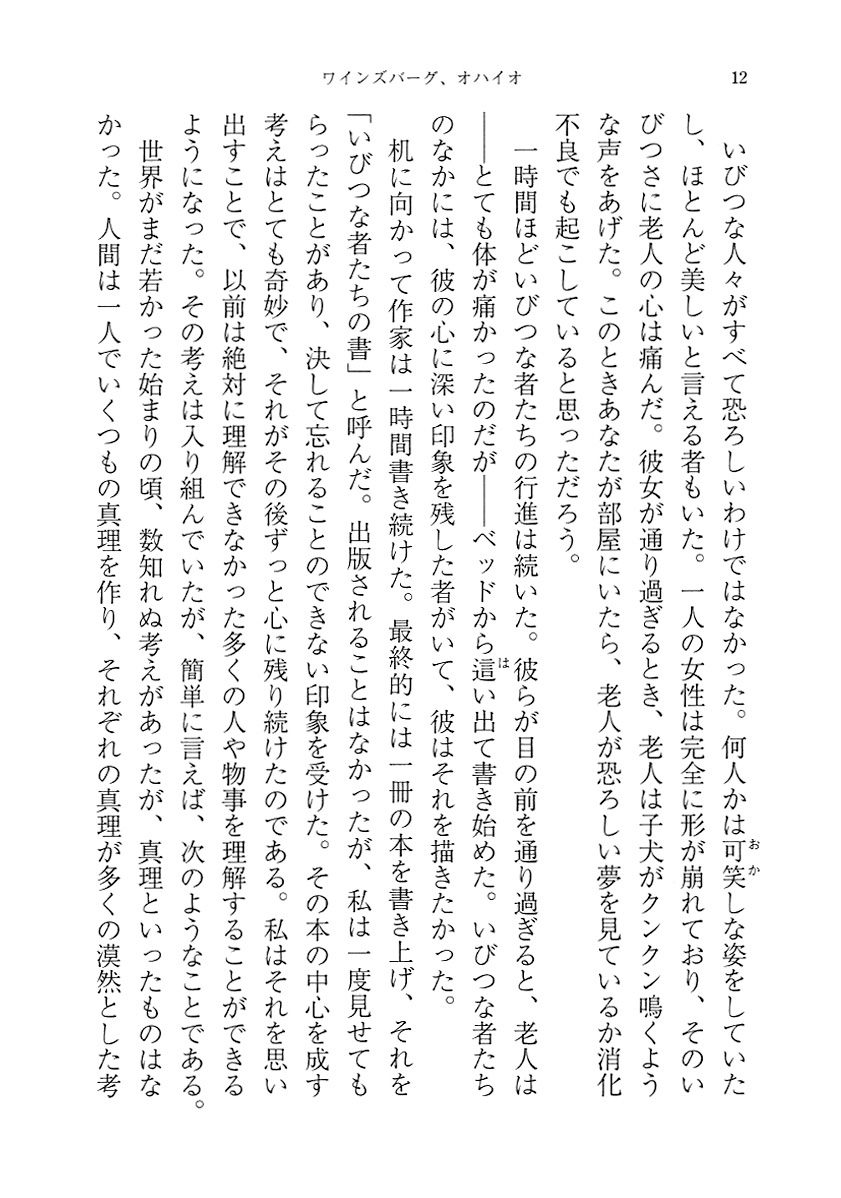 ワインズバーグ、オハイオ
12
いびつな人々がすべて恐ろしいわけではなかった。何人かは可笑しな姿をしていた
し、ほとんど美しいと言える者もいた。一人の女性は完全に形が崩れており、そのい
びつさに老人の心は痛んだ。彼女が通り過ぎるとき、老人は子犬がクンクン鳴くよう
な声をあげた。このときあなたが部屋にいたら、老人が恐ろしい夢を見ているか消化
不良でも起こしていると思っただろう。
一時間ほどいびつな者たちの行進は続いた。彼らが目の前を通り過ぎると、老人は
――とても体が痛かったのだが――ベッドから這い出て書き始めた。いびつな者たち
のなかには、彼の心に深い印象を残した者がいて、彼はそれを描きたかった。
机に向かって作家は一時間書き続けた。最終的には一冊の本を書き上げ、それを
「いびつな者たちの書」と呼んだ。出版されることはなかったが、私は一度見せても
らったことがあり、決して忘れることのできない印象を受けた。その本の中心を成す
考えはとても奇妙で、それがその後ずっと心に残り続けたのである。私はそれを思い
出すことで、以前は絶対に理解できなかった多くの人や物事を理解することができる
ようになった。その考えは入り組んでいたが、簡単に言えば、次のようなことである。
世界がまだ若かった始まりの頃、数知れぬ考えがあったが、真理といったものはな
かった。人間は一人でいくつもの真理を作り、それぞれの真理が多くの漠然とした考